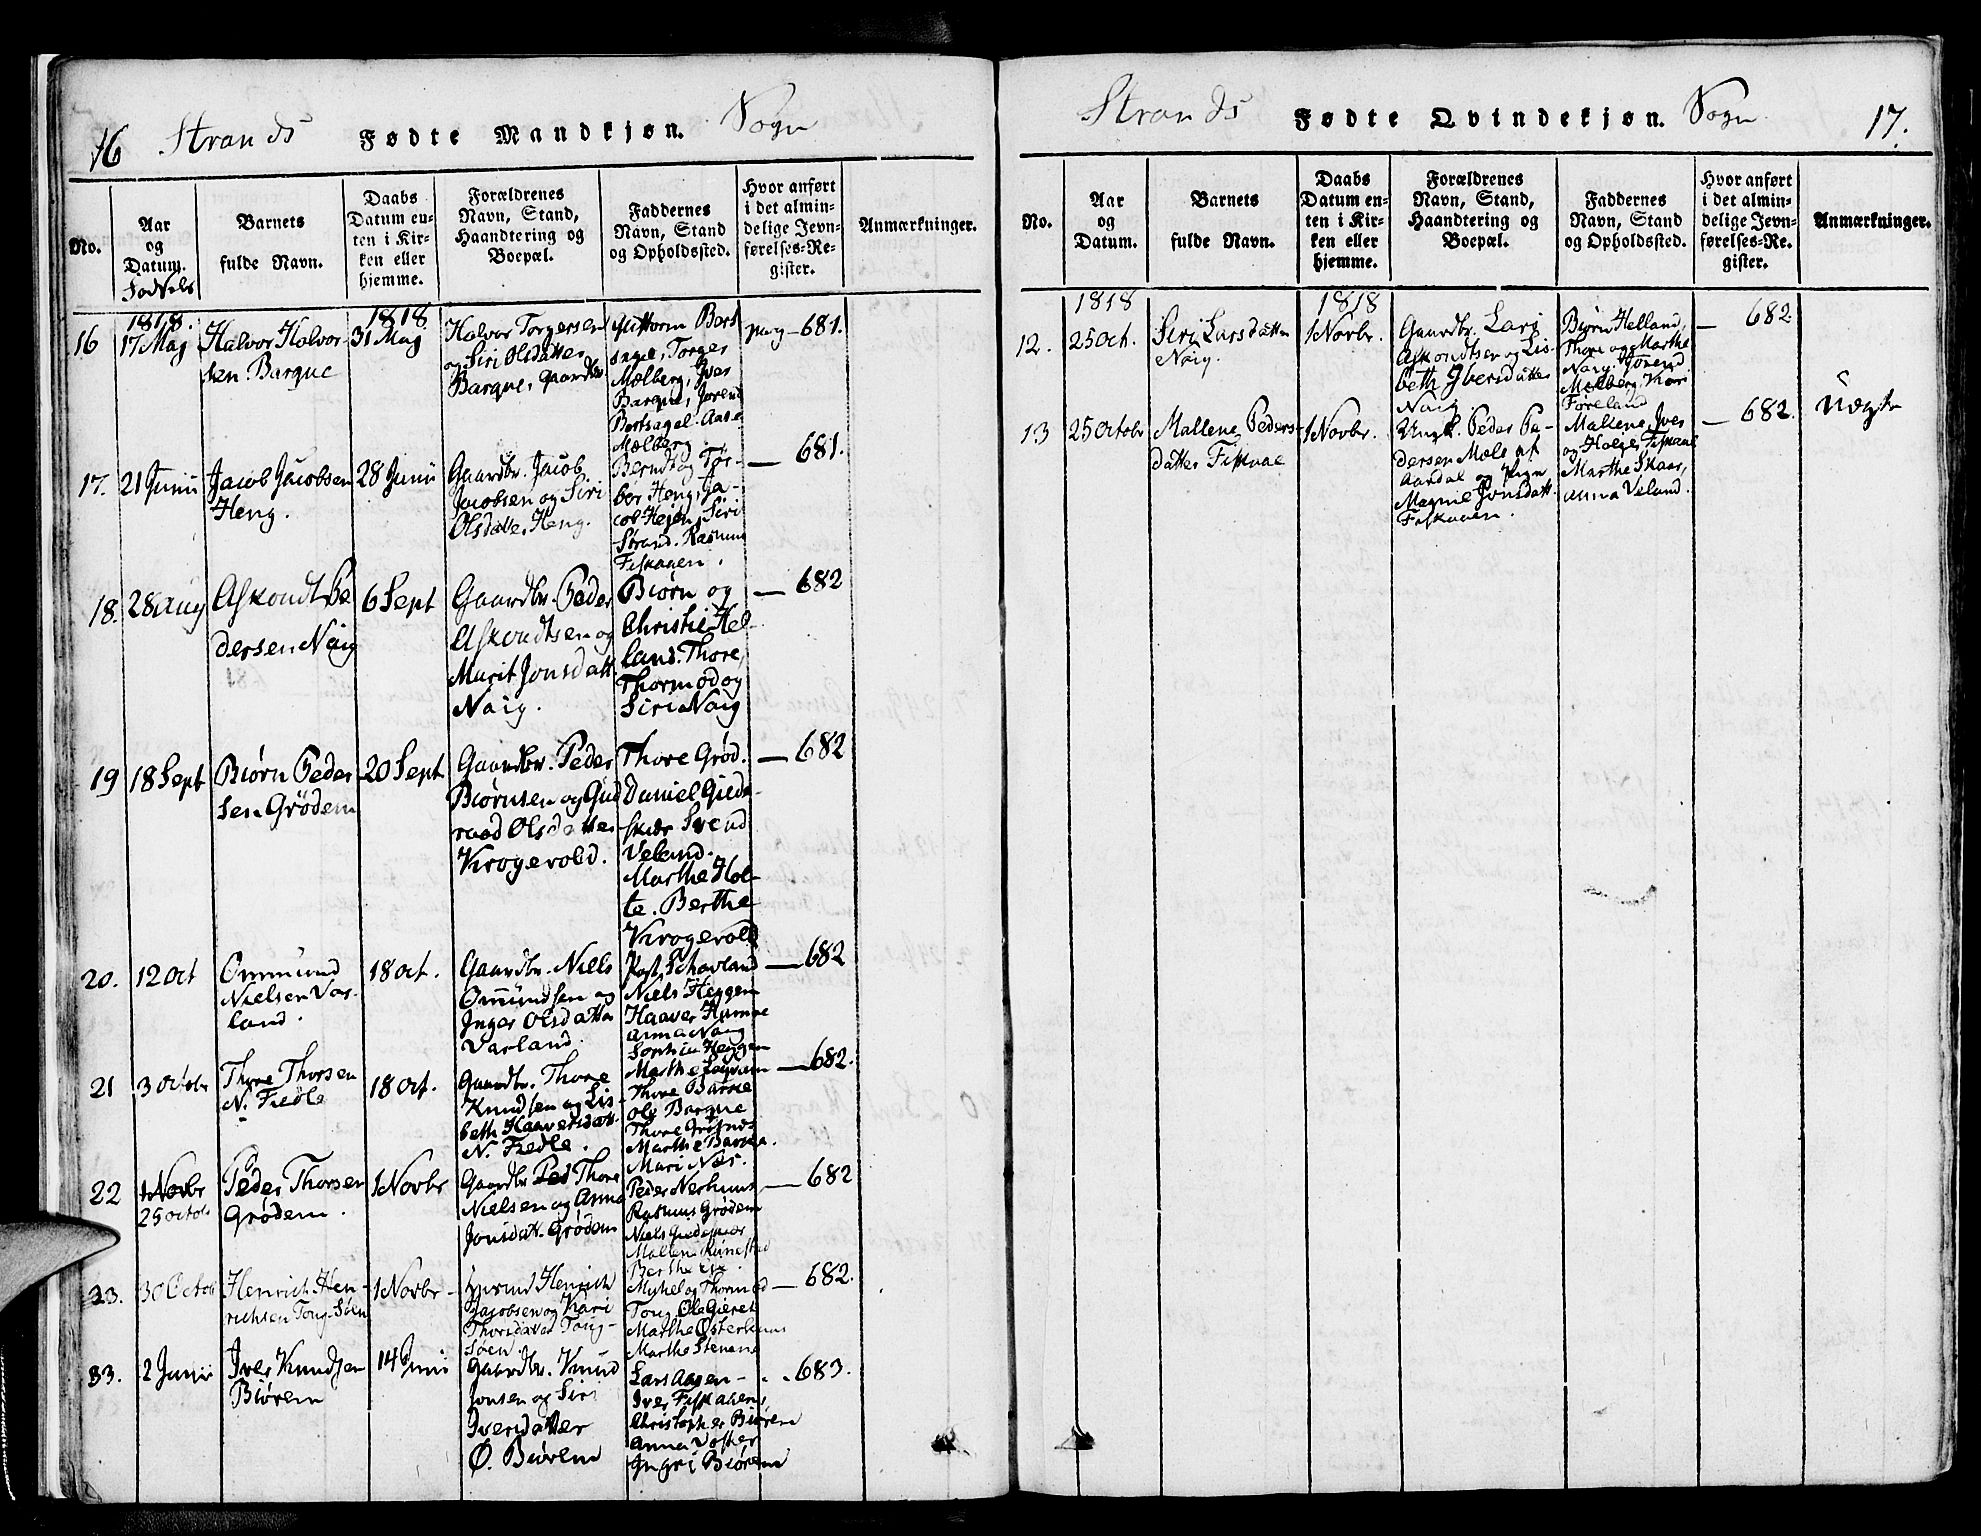 16 Strands Fødte Mandkjøn. Sogn
No.
Aar
og
Datum.
Fødsels
Barnets
fulde Navn.
Daabs
Datum en-
ten i Kir-
ken eller
hjemme.
Forældrenes
Navn, Stand,
Haandtering og
Boepæl.
Faddernes
Navn, Stand
og Opholdssted.
Hvor anført
i det almin-
delige Jevn-
førelses-Re-
gister.
Anmærkninger.
16
1818.
17 Maj
Halvor Halvor-
sen Barque
1818
31 Maj
Halvor Torgersen
og Siri Olsdatter
Barque, Gaardbr.
Guttorm Bort
sagel, Torger
Mølberg, Iver
Barque, Jorend
Bortsagel. Aase
Mølberg
pag - 681.
17.
21 Junii
Jacob Jacobsen
Heng.
28 Junii
Gaardbr. Jacob
Jacobsen og Siri
Olsdatte. Heng.
Berndt og Tor-
bor Heng, Ja-
cob Hejen, Siri
Strand. Rasmus
Fiskaaen.
— 681.
18.
28 Aug
Askondt Pe
dersen Naig
6 Sept
Gaardbr. Peder
Askondtsen og
Marit Jonsdatt.
Naig.
Biørn og
Christie Hel-
land. Thore,
Thormod og
Siri Naig
— 682
19
18 Sept
Biørn Peder
sen Grødem
20 Sept
Gaardbr. Peder
Biørnsen og Gud
raad Olsdatter
Krogevold.
Thore Grød.
Daniel Gilde-
skær Svend
Veland.
Marthe Hol-
te. Berthe
Krogevold
— 682
20.
12 Oct
Ommund
Nielsen Var-
land.
18 Oct.
Gaardbr. Niels
Ommundsen og
Inger Olsdatter
Varland
Schavland
Niels Heggem
Haaver
Anna Naig
Sophia Heggem
— 682
21
3 Octobr
Thore Thorsen
N. Fiedle
18 Oct.
Gaardbr. Thore
Knudsen og Lis-
beth Haaversdatt.
N. Fiedle.
Marthe
Thore Barke
Ole Barque
Thore
Marthe Barka.
Mari Næs.
— 682.
22
1 Novbr
25 Octobr
Peder Thorsen
Grødem.
1 Novbr
Gaardbr. Ped Thore
Nielsen og Anna
Jonsdatt. Grødem
Peder Nerhuus
Rasmus Grødem
Niels Gildeskær
Mallene
Berthe
— 682
23.
30 Octob
Henrich Hen-
richsen Toug-Søen
1 Novbr -
Henrich
Jacobsen og Kari
Thorsdatter Toug-
Søen.
Mykel og Thormod
Toug, Ole Gieret
Marthe Østerhuus
Marthe
— 682.
33.
2 Junii
Iver Knudsen
Biørem
14 Junii
Gaardbr. Knud
Jonsen og Siri
Iversdatter
Ø. Biørem
Lars Aasen -
Iver Fiskaaen,
Christopher Biørem
Anna
Ingri Biørem
683.
Strands Fødte Qvindekjøn. Sogn. 17.
No.
Aar
og
Datum.
Barnets
fulde Navn.
Daabs
Datum en-
ten i Kir-
ken eller
hjemme.
Forældrenes
Navn, Stand,
Haandtering og
Boepæl.
Faddernes
Navn, Stand
og Opholdssted.
Hvor anført
i det almin-
delige Jevn-
førelses-Re.
gister.
Anmærkninger.
12.
1818
25 Oct.
Siri Larsdatter
Naig.
1818
1 Novbr.
Gaardbr. Lars
Askondtsen og Lis-
beth Iversdatter
Naig.
Biørn Helland,
Thore og Marthe
Naig. Jorend
Mølberg, Kari
Føreland
— 682
13
25 Octobr
Mallene Peders-
datter Fiskaae
1 Novbr.
Ungk. Peder Pe-
dersen Mæle af
Aardal og Pigen
Magnil Jonsdatt.
Fiskaaen.
Mallene, Iver
og Helge Fiskaae
Marthe Skaar,
Anna Veland.
— 682.
Uægte